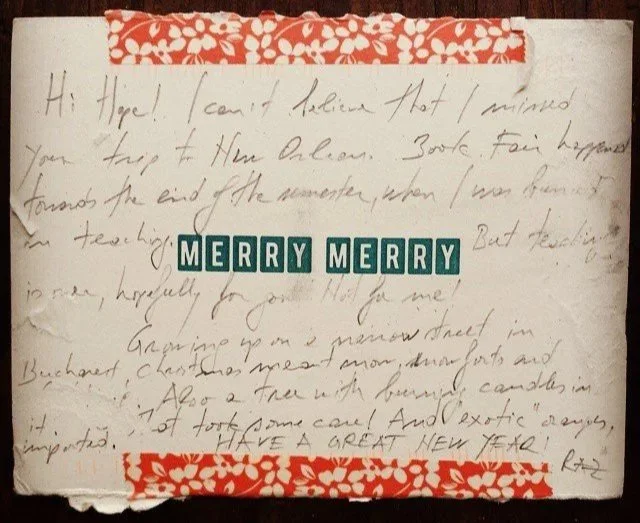 Hi Hope! I can't believe that I missed
your trip to New Orleans. Book Fair happened
towards the end of the semester, when I was buried
in teaching. But teaching
MERRY MERRY
is over, hopefully for you! Not for me!
Growing up on a narrow street in
Bucharest, Christmas meant snow, snow forts and
Also a tree with burning candles in
it, took some care! And "exotic" oranges,
imported. HAVE A GREAT NEW YEAR!